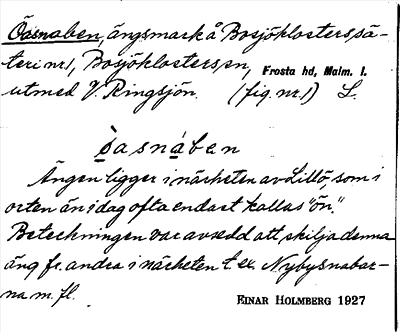 Öasnaben, ängsmark å Bosjöklosters sä-
teri nr 1, Bosjöklosters sn, Frosta hd, Malm. l.
utmed V. Ringsjön. (fig. nr 1) L.
ȯasnában
Ängen ligger i närheten av Lillö, som i
orten än i dag ofta endast kallas "ön".
Beteckningen var avsedd att skilja denna
äng fr. andra i närheten t. ex. Nybysnabar-
na m. fl.
EINAR HOLMBERG 1927